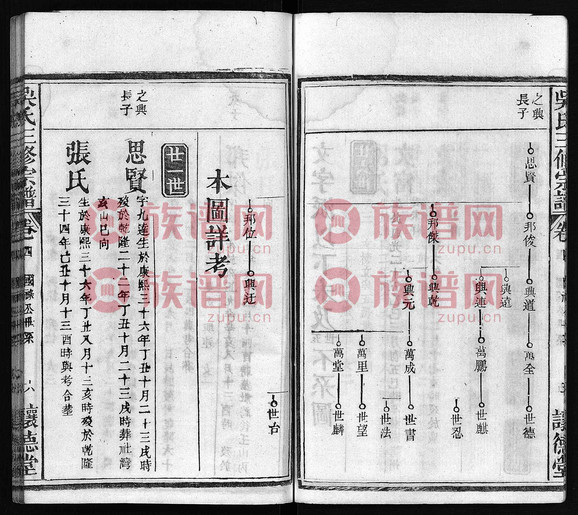 吳氏三修宗譜
讓德堂
之興
長子
思賢
邦俊
興道
萬全
世德
興遠
興連
萬鵬
世麒
世忍
邦傑
興乾
興元
萬成
世書
萬里
世望
世法
萬堂
世麟
邦位
興廷
世台
本圖詳考
之興
長子
廿一世
思賢
字九蓮生於康熙三十六年丁丑十月二十三戌時
歿於乾隆二十二年丁丑十月二十三戌時葬社灣
山巳向
張氏
生於康熙三十六年丁丑八月十三亥時歿於乾隆
三十四年己丑十月十三酉時與考合墓
吳氏三修宗譜
卷四
讓德堂
族谱网
zupu.cn